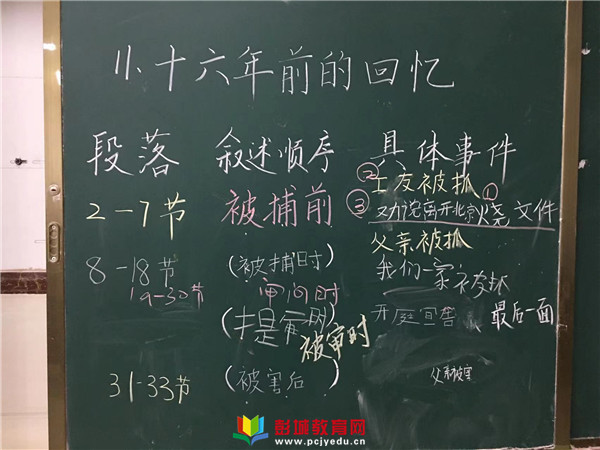 11.十六年前的回忆
段落 叙述顺序 具体事件
②工友被抓
2-7节 被捕前 ③劝说离开北京 ①烧文件
父亲被抓
8-18节 (被捕时) 我们一家被抓
19-30节 审问时
(提审时) 开庭宣告 最后一面
被审时
31-33节 (被害后) 父亲被害
彭城教育网
www.pcjyedu.cn